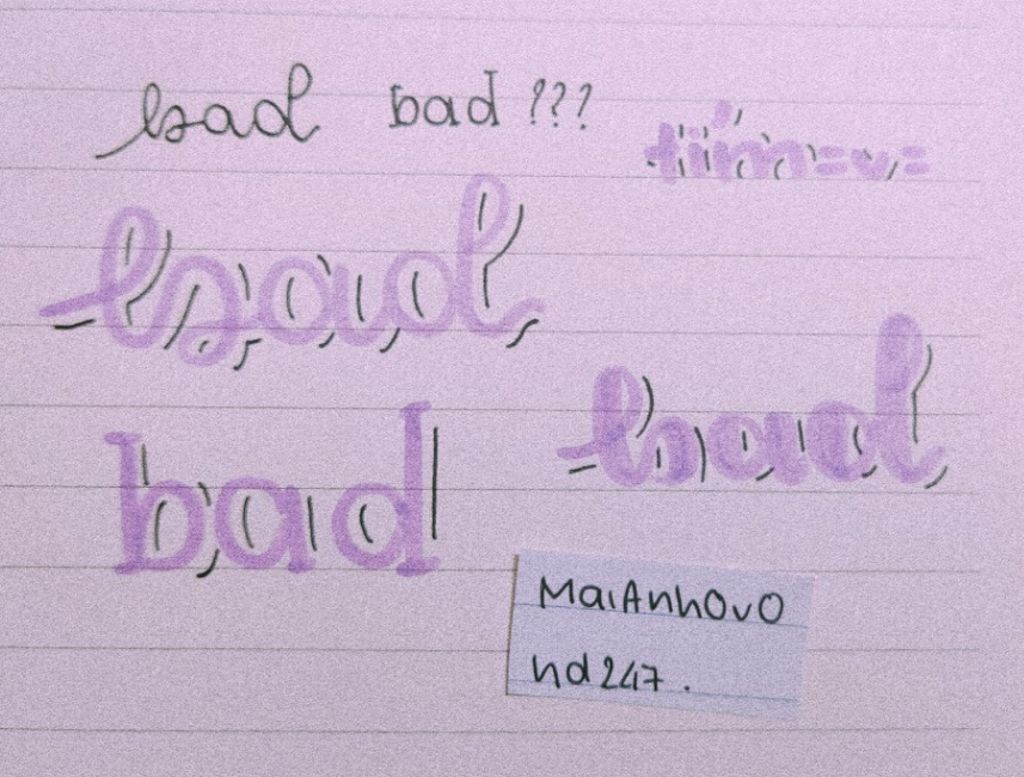 sad bad ???
tím =v=
sad
bad
bad
MaiAnhOvO
hd247.